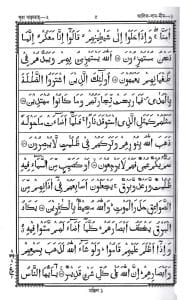 সূরা বাক্বারাহ—২ আলিফ-লাম-মীম—১
اٰمَنَّا ۖ وَاِذَا خَلَوْا اِلٰى شَيٰطِيْنِهِمْ ۙ قَالُوْٓا اِنَّا مَعَكُمْ ۙ اِنَّمَا
نَحْنُ مُسْتَهْزِءُوْنَ ۝ اَللّٰهُ يَسْتَهْزِئُ بِهِمْ وَيَمُدُّهُمْ فِيْ
طُغْيَانِهِمْ يَعْمَهُوْنَ ۝ اُولٰٓئِكَ الَّذِيْنَ اشْتَرَوُا الضَّلٰلَةَ
بِالْهُدٰى ۪ فَمَا رَبِحَتْ تِّجَارَتُهُمْ وَمَا كَانُوْا مُهْتَدِيْنَ ۝
مَثَلُهُمْ كَمَثَلِ الَّذِي اسْتَوْقَدَ نَارًا ۚ فَلَمَّآ اَضَآءَتْ مَا حَوْلَهٗ
ذَهَبَ اللّٰهُ بِنُوْرِهِمْ وَتَرَكَهُمْ فِيْ ظُلُمٰتٍ لَّا يُبْصِرُوْنَ ۝
صُمٌّ ۢ بُكْمٌ عُمْيٌ فَهُمْ لَا يَرْجِعُوْنَ ۝ اَوْ كَصَيِّبٍ مِّنَ السَّمَآءِ فِيْهِ
ظُلُمٰتٌ وَّرَعْدٌ وَّبَرْقٌ ۚ يَجْعَلُوْنَ اَصَابِعَهُمْ فِيْٓ اٰذَانِهِمْ مِّنَ
الصَّوَاعِقِ حَذَرَ الْمَوْتِ ؕ وَاللّٰهُ مُحِيْطٌ ۢ بِالْكٰفِرِيْنَ ۝ يَكَادُ
الْبَرْقُ يَخْطَفُ اَبْصَارَهُمْ ؕ كُلَّمَآ اَضَآءَ لَهُمْ مَّشَوْا فِيْهِ ۙ
وَاِذَآ اَظْلَمَ عَلَيْهِمْ قَامُوْا ؕ وَلَوْ شَآءَ اللّٰهُ لَذَهَبَ بِسَمْعِهِمْ
وَاَبْصَارِهِمْ ؕ اِنَّ اللّٰهَ عَلٰى كُلِّ شَيْءٍ قَدِيْرٌ ۝ يٰٓاَيُّهَا النَّاسُ
মঞ্জিল ১